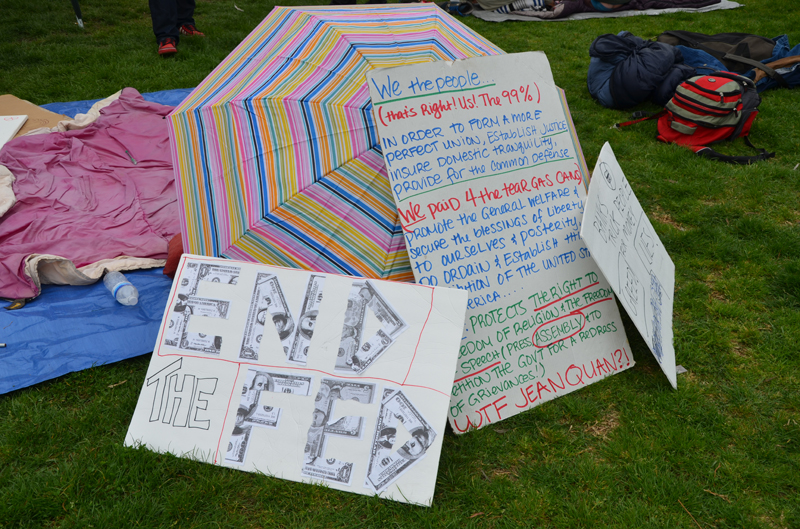 We the people...
(that's Right! Us! The 99%)
IN ORDER TO FORM A MORE
PERFECT UNION, EStabliSh JUSTICE
INSURE DOMESTIC tranquility,
PROVIDE FOR the Common Defense
We PAID 4 the tear GAS CANS
PROMOTE the General Welfare &
SECURE the blessings of Liberty
to ourselves & posterity
ORDAIN & EStabliSh
OF THE UNITED
PROTECTS THE RIGHT TO
OF RELIGION & THE FREEDOM
SPEECH (PRESS, ASSEMBLY & TO
THE GOVT FOR A REDRESS
OF GRIEVANCES!)
WTF JEAN QUAN?!
END
THE FED